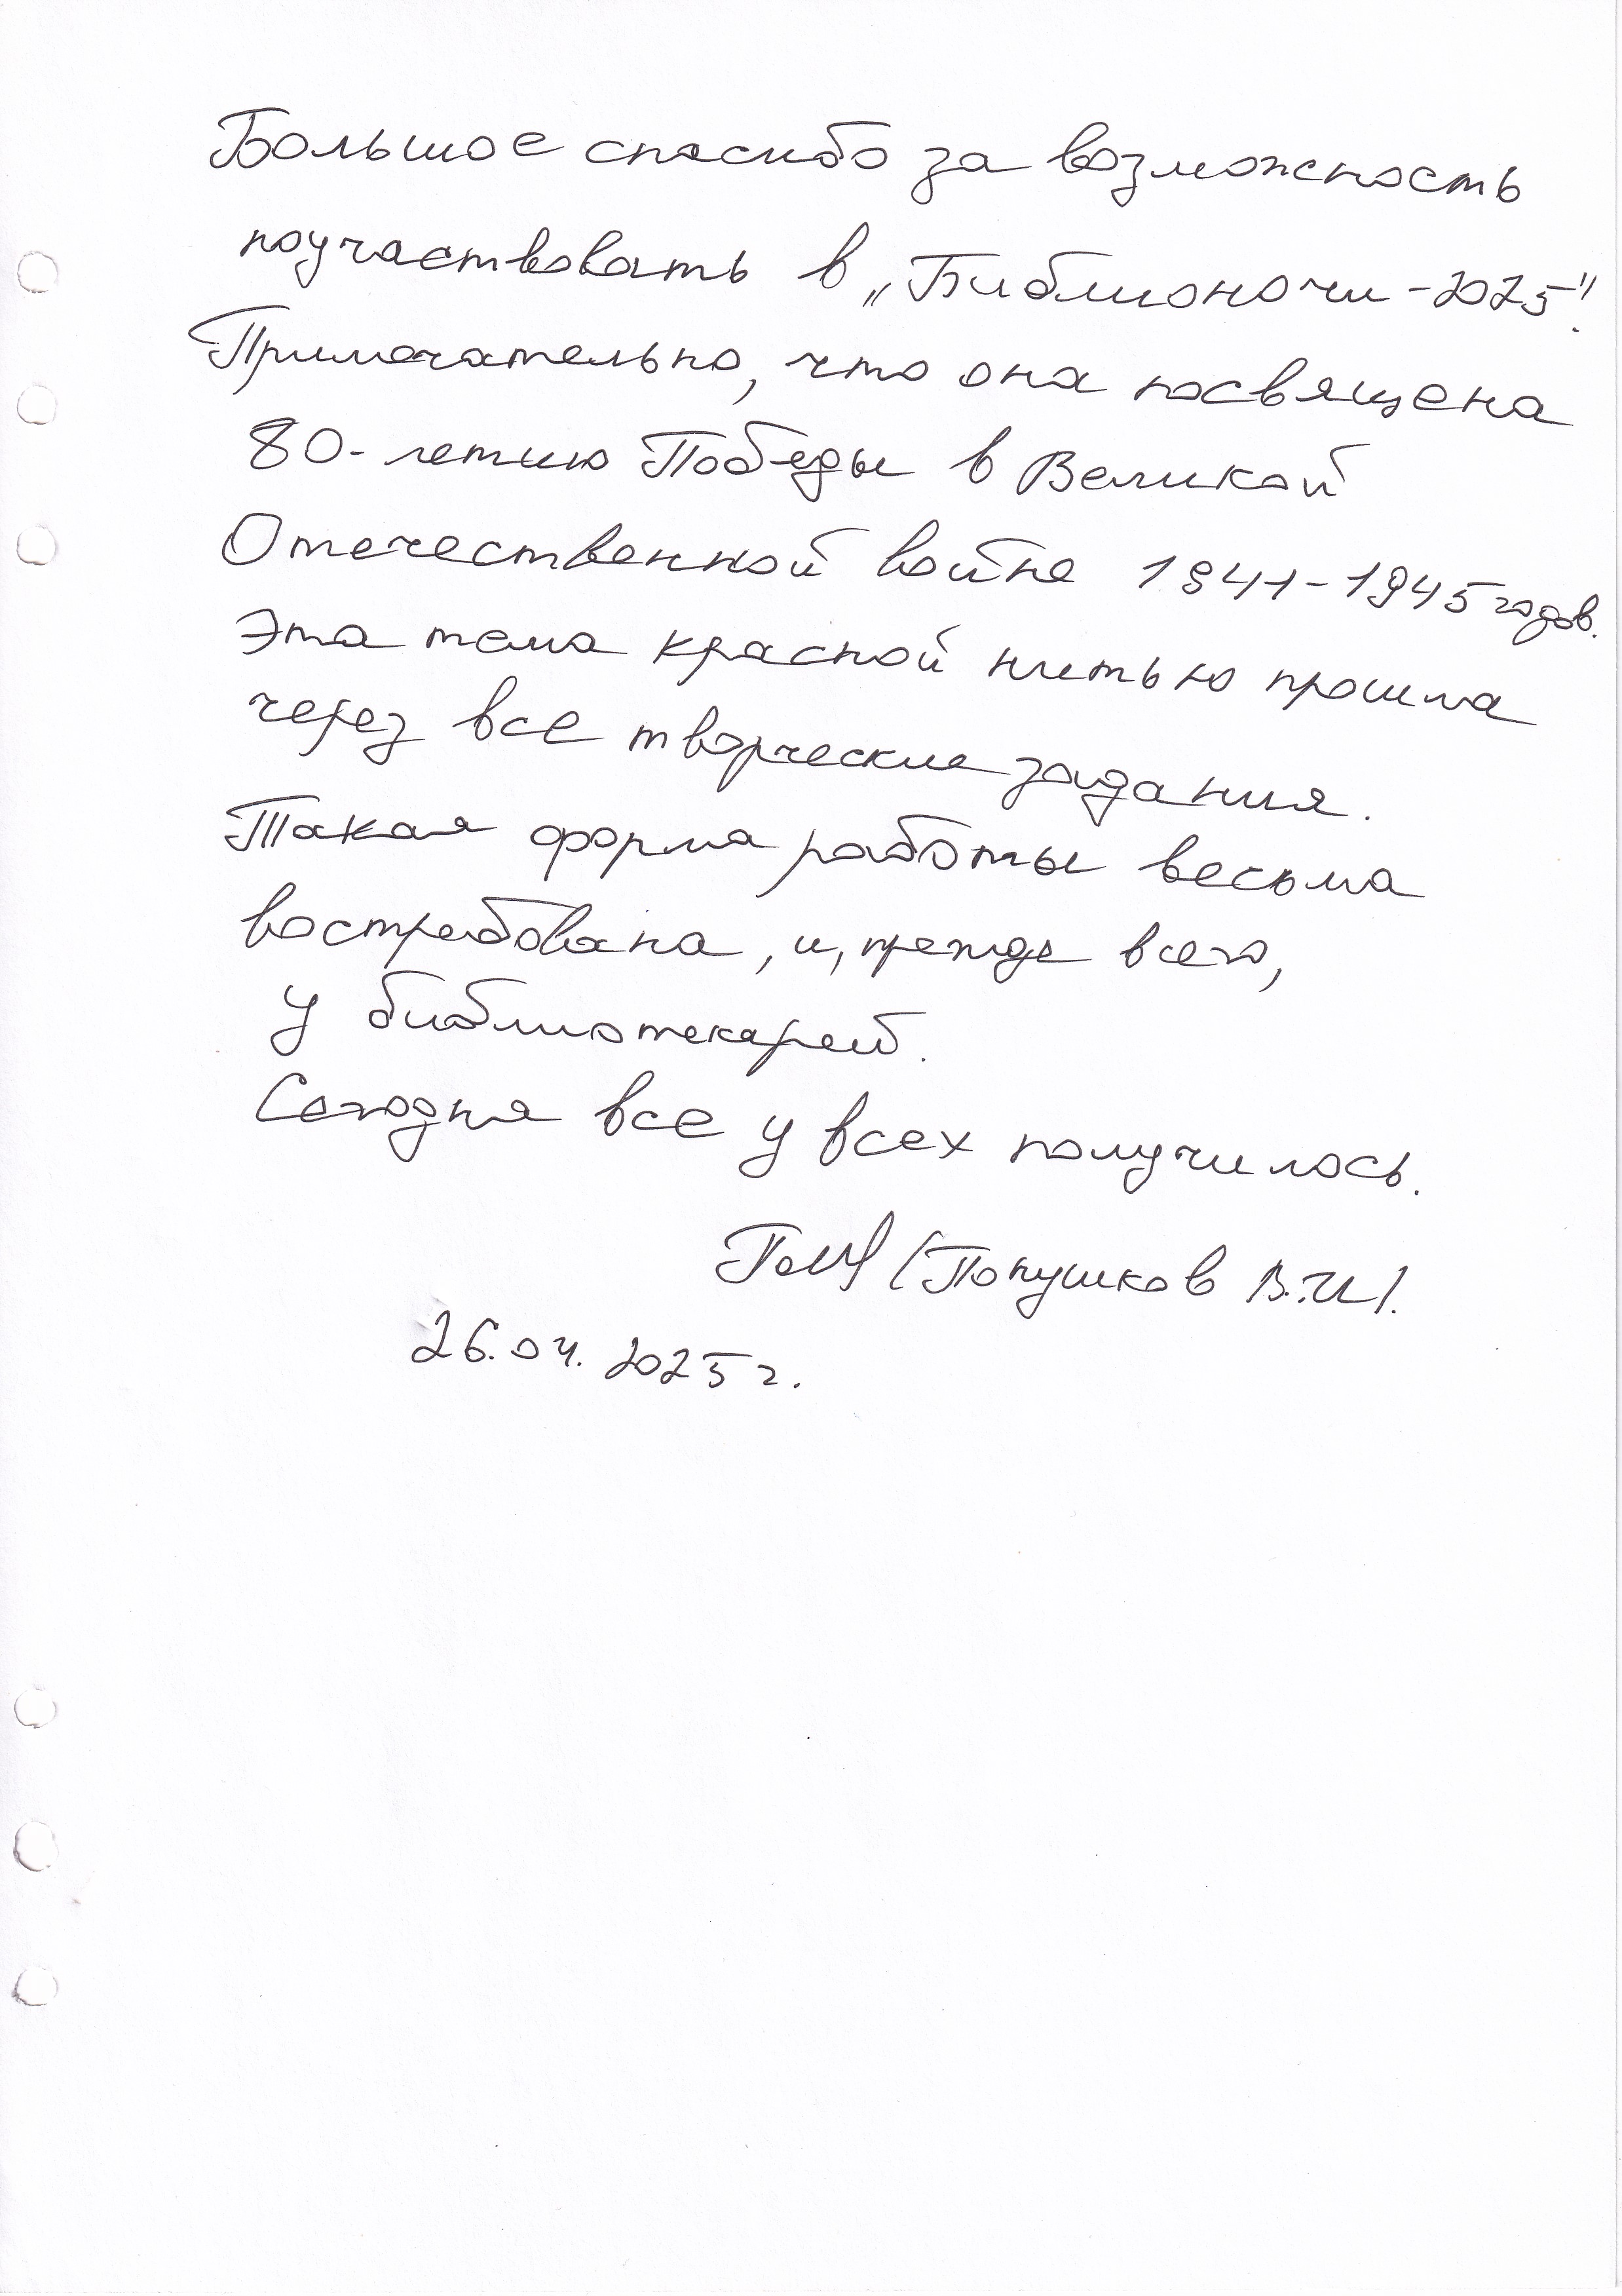 Большое спасибо за возможность
поучаствовать в „Библионочи-2025".
Примечательно, что она посвящена
80-летию Победы в Великой
Отечественной войне 1941-1945 годов.
Эта тема красной нитью прошла
через все творческие задания.
Такая форма работы весьма
востребована, и, прежде всего,
у библиотекарей.
Сегодня все у всех получилось.
(Попушков В.И).
26.04.2025 г.